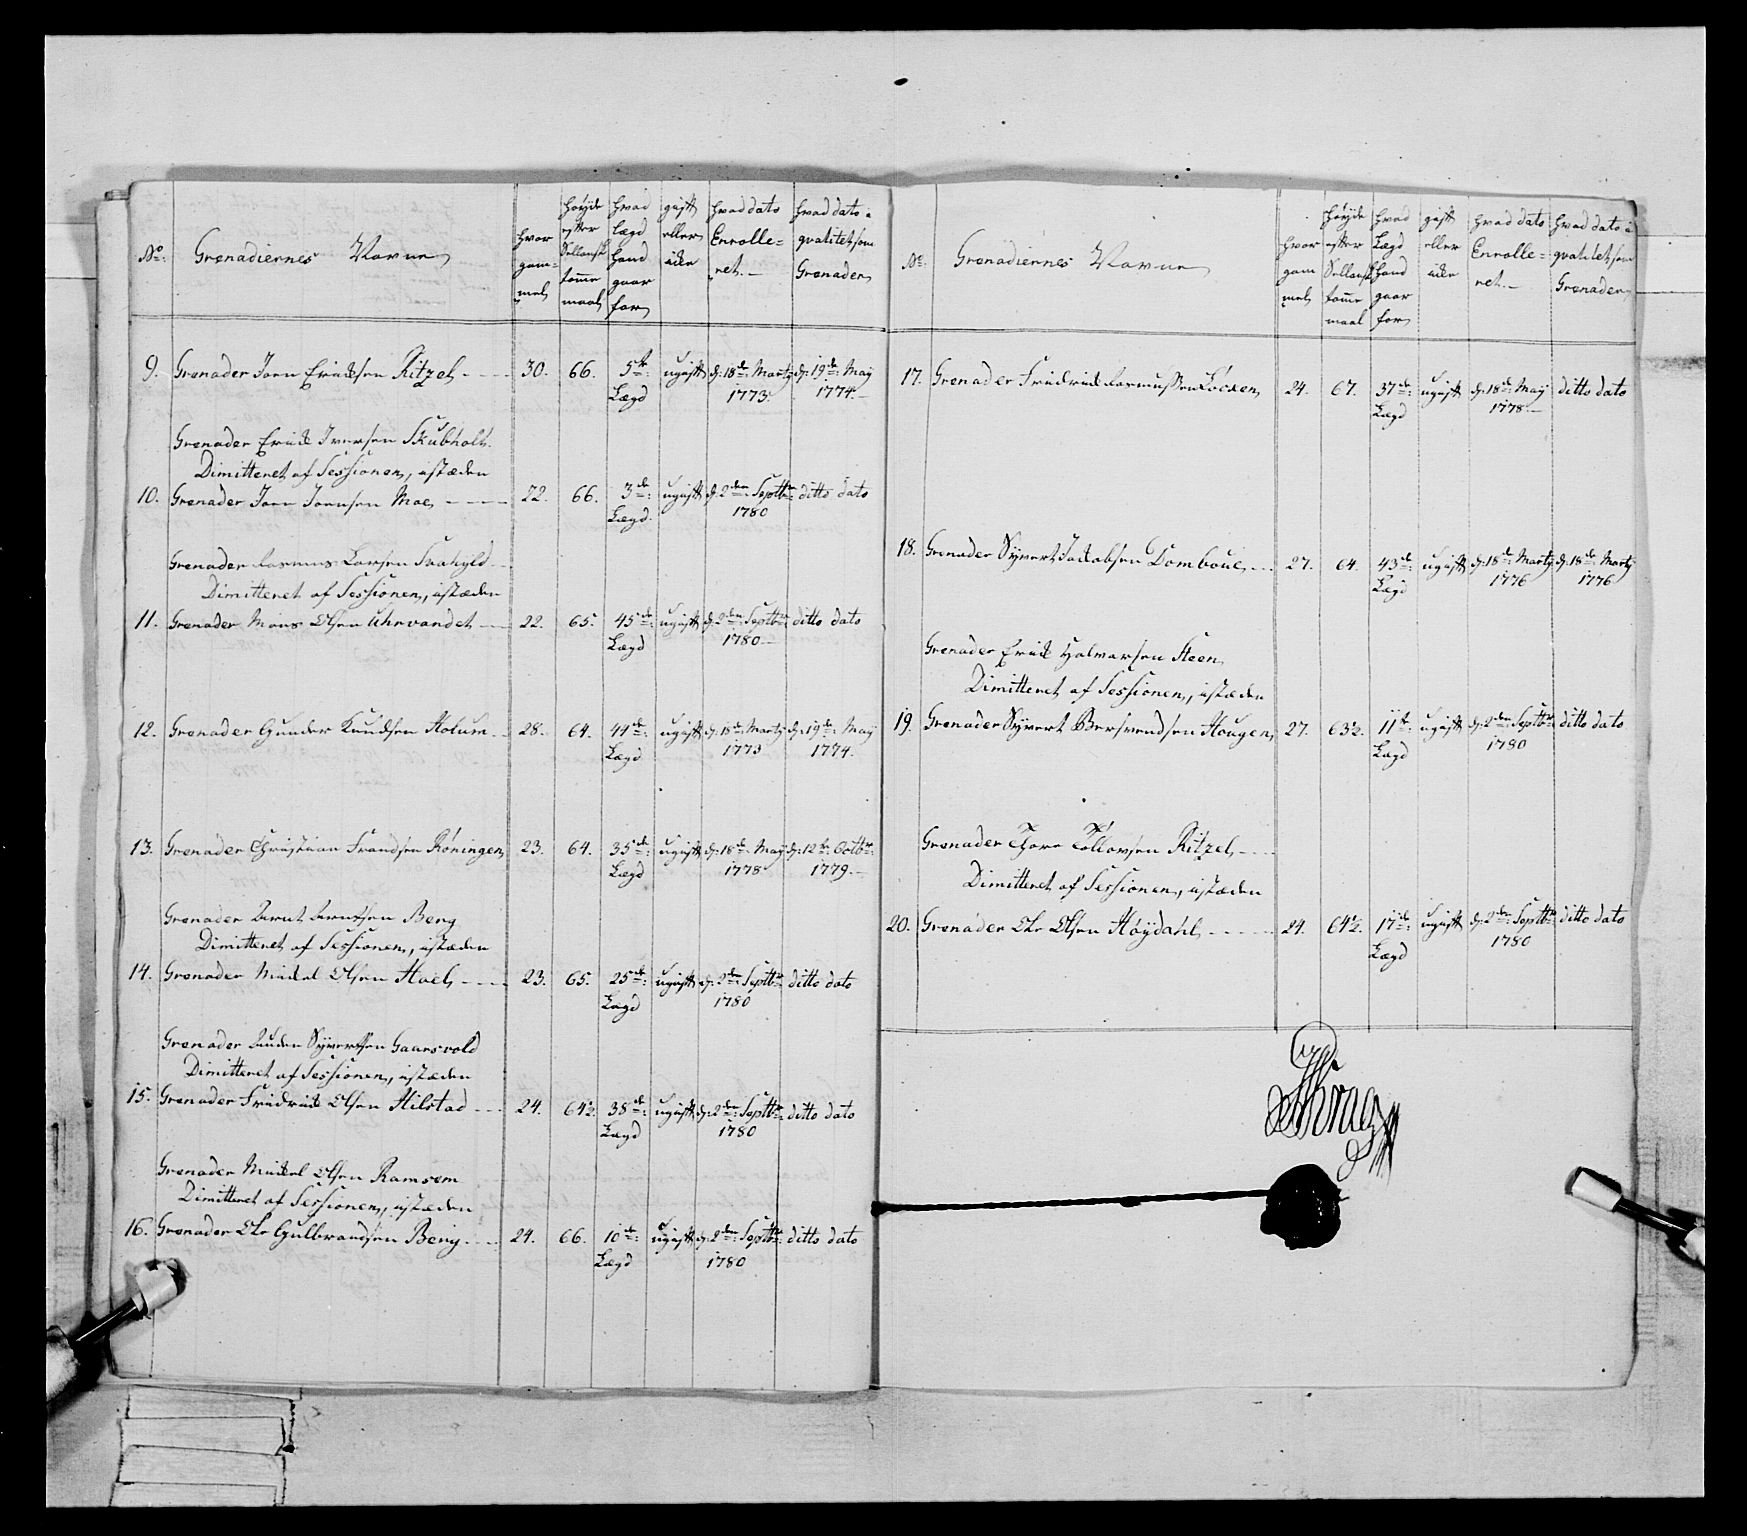 No:
Grenadiernes Navne
hvor gam= mel
høyde efter Sellansk tomme maal
hvad Lægd hand gaar for
gift eller icke
hvad dato Enrolle= ret.
hvad dato i qvalitet som Grenader
9. Grenader Joen Ericksen Ritzel 30. 66. 5te: Lægd ugift d: 18de Marty 1773. d: 19de: May 1774.
Grenader Erick Iversen Skubholt.
Dimitteret af Sessionen, istæden
10. Grenader Joen Joensen Moe 22. 66. 3de: Lægd. ugift d: 2den: Septbr: 1780 ditto dato
Grenader Rasmus Larsen
Dimitteret af Sessionen, istæden
11. Grenader Mons Olsen Uhrvandet 22. 65. 45de: Lægd ugift d: 2den: Septbr: 1780 ditto dato
12. Grenader Gunder Knudsen Holum 28. 64. 44de: Lægd ugift d: 18de: Marty 1773 d: 19de: May 1774.
13. Grenader Christian Frandsen Röningen 23. 64. 35de: Lægd ugift d: 18de: May 1778 d: 12te: Octbr: 1779.
Grenader Bernt Berntsen Berg
Dimitteret af Sessionen, istæden
14. Grenader Mickel Olsen Hoel 23. 65. 25de: Lægd ugift d: 2den: Septbr: 1780 ditto dato
Grenader Syvertsen Gaarsvold
Dimitteret af Sessionen, istæden
15. Grenader Fridrick Olsen Hilstad 24. 64½. 38de: Lægd ugift d: 2den: Septbr: 1780 ditto dato
Grenader Mickel Olsen Ramsem
Dimitteret af Sessionen, istæden
16. Grenader Ole Gulbrandsen Berg 24. 66. 10de: Lægd ugift d: 2den: Septbr: 1780 ditto dato
No:
Grenadiernes Navne
hvor gam mel
høyde efter Sellansk tomme maal
hvad Lægd hand gaar for
gift eller icke
hvad dato Enrolle= ret.
hvad dato i qvalitet som Grenader
17. Grenader Fridrick Rasmussen 24. 67. 37de: Lægd ugift d: 18de: May 1778. ditto dato
18. Grenader Syvert Jacobsen Domboue 27. 64. 43de: Lægd ugift d: 18de: Marty 1776 d: 18de: Marty 1776
Grenader Erick Halvorsen Steen
Dimitteret af Sessionen, istæden
19. Grenader Syvert Bersvendsen Hougen 27. 63½. 11te: Lægd ugift d: 2den: Septbr: 1780 ditto dato
Grenader Thore Tollovsen Ritzel
Dimitteret af Sessionen, istæden
20. Grenader Ole Olsen Høydahl 24. 64½. 17de: Lægd ugift d: 2den: Septbr: 1780 ditto dato